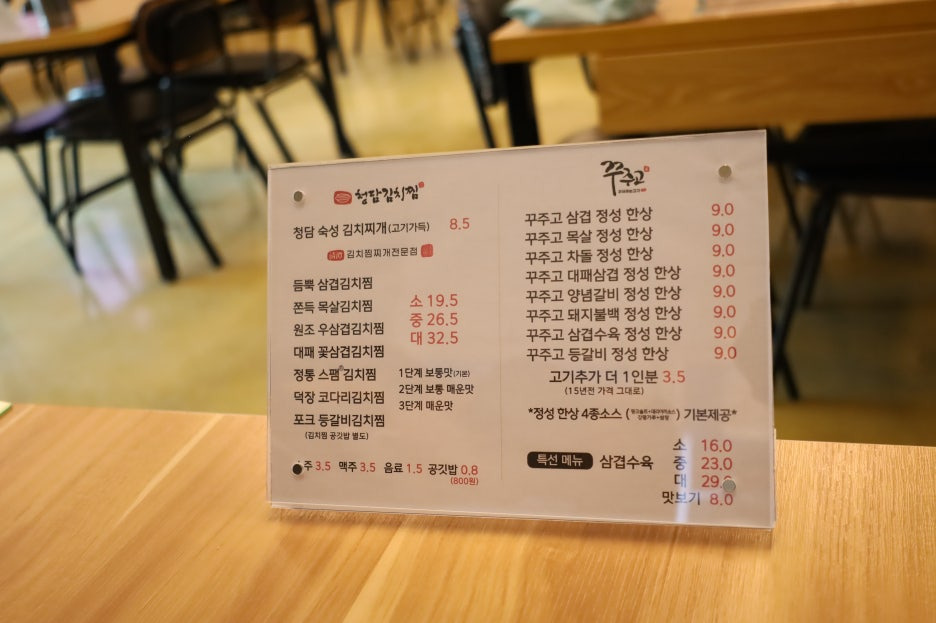 청담김치찜
청담 숙성 김치찌개(고기가득) 8.5
김치찜찌개전문점
듬뿍 삼겹김치찜
쫀득 목살김치찜
원조 우삼겹김치찜
대패 꽃삼겹김치찜
정통 스팸김치찜
덕장 코다리김치찜
포크 등갈비김치찜
(김치찜 공깃밥 별도)
소 19.5
중 26.5
대 32.5
1단계 보통맛(기본)
2단계 보통 매운맛
3단계 매운맛
주 3.5 맥주 3.5 음료 1.5 공깃밥 0.8
(800원)
꾸주고
꾸주고 삼겹 정성 한상 9.0
꾸주고 목살 정성 한상 9.0
꾸주고 차돌 정성 한상 9.0
꾸주고 대패삼겹 정성 한상 9.0
꾸주고 양념갈비 정성 한상 9.0
꾸주고 돼지불백 정성 한상 9.0
꾸주고 삼겹수육 정성 한상 9.0
꾸주고 등갈비 정성 한상 9.0
고기추가 더 1인분 3.5
(15년전 가격 그대로)
*정성 한상 4종소스 ( ) 기본제공*
특선 메뉴 삼겹수육
소 16.0
중 23.0
대 29.
맛보기 8.0